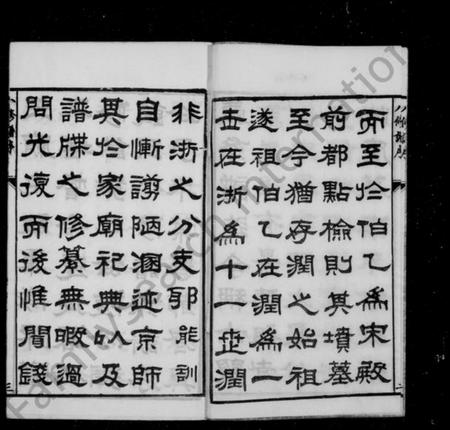 而至於伯乙爲宋殿
前都點檢則其墳墓
至今猶存潤之始祖
遂祖伯乙在潤爲一
世在浙爲十一世潤
非浙之分支耶能訓
自慚譾陋溷迹京師
其於家廟祀典以及
譜牒之修纂無暇過
問光復而後惟聞錢
FamilySearch International